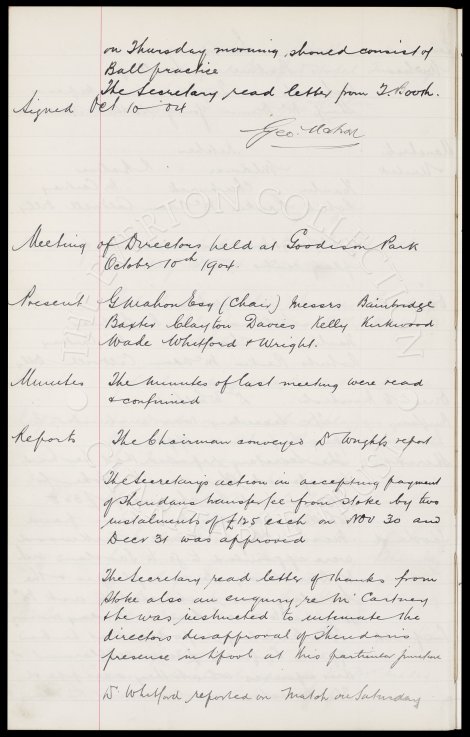 on Thursday morning should consist of
Ball practice
The Secretary read letter from T. Booth.
Signed Oct 10 04
Geo. Mahon
Meeting of Directors held at Goodison Park
October 10th 1904.
Present G Mahon Esq (Chair) Messrs Bainbridge
Baxter Clayton Davies Kelly Kirkwood
Wade Whitford & Wright.
Minutes The minutes of last meeting were read
& confirmed
Reports The Chairman conveyed Dr Wrights report
The Secretary's action in accepting payment
of Sheridans transfer fee from Stoke by two
instalments of £125 each on Nov 30 and
Decr 31 was approved
The Secretary read letter of thanks from
Stoke also an enquiry re McCartney
& he was instructed to intimate the
directors disapproval of Sheridan's
presense in L'pool at this particular juncture
Dr Whitford reported on Match on Saturday
THE EVERTON COLLECTION